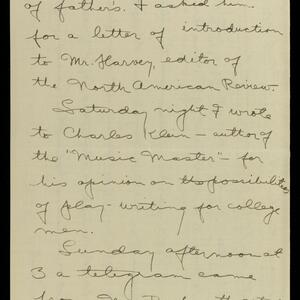 of father's. I asked him
for a letter of introduction
to Mr. Harvey, editor of
the North American Review.
Saturday night I wrote
to Charles Klein - author of
the "Music Master" - for
his opinion on the possibilities
of play-writing for college
men.
Sunday afternoon at
3 a telegram came
from